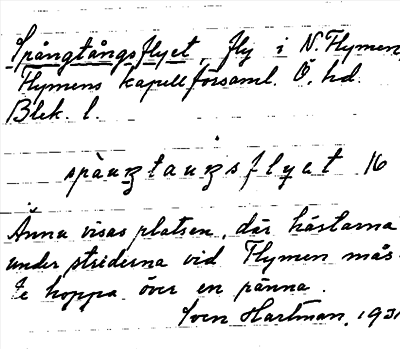 Spångtångsflyet, fly i N. Flymen,
Flymens kapellförsaml. Ö. hd.
Blek. l.
spàŋtaŋsflyet 16
Ännu visas platsen, där hästarna
under striderna vid Flymen mås-
te hoppa över en ränna.
Sven Hartman, 1931